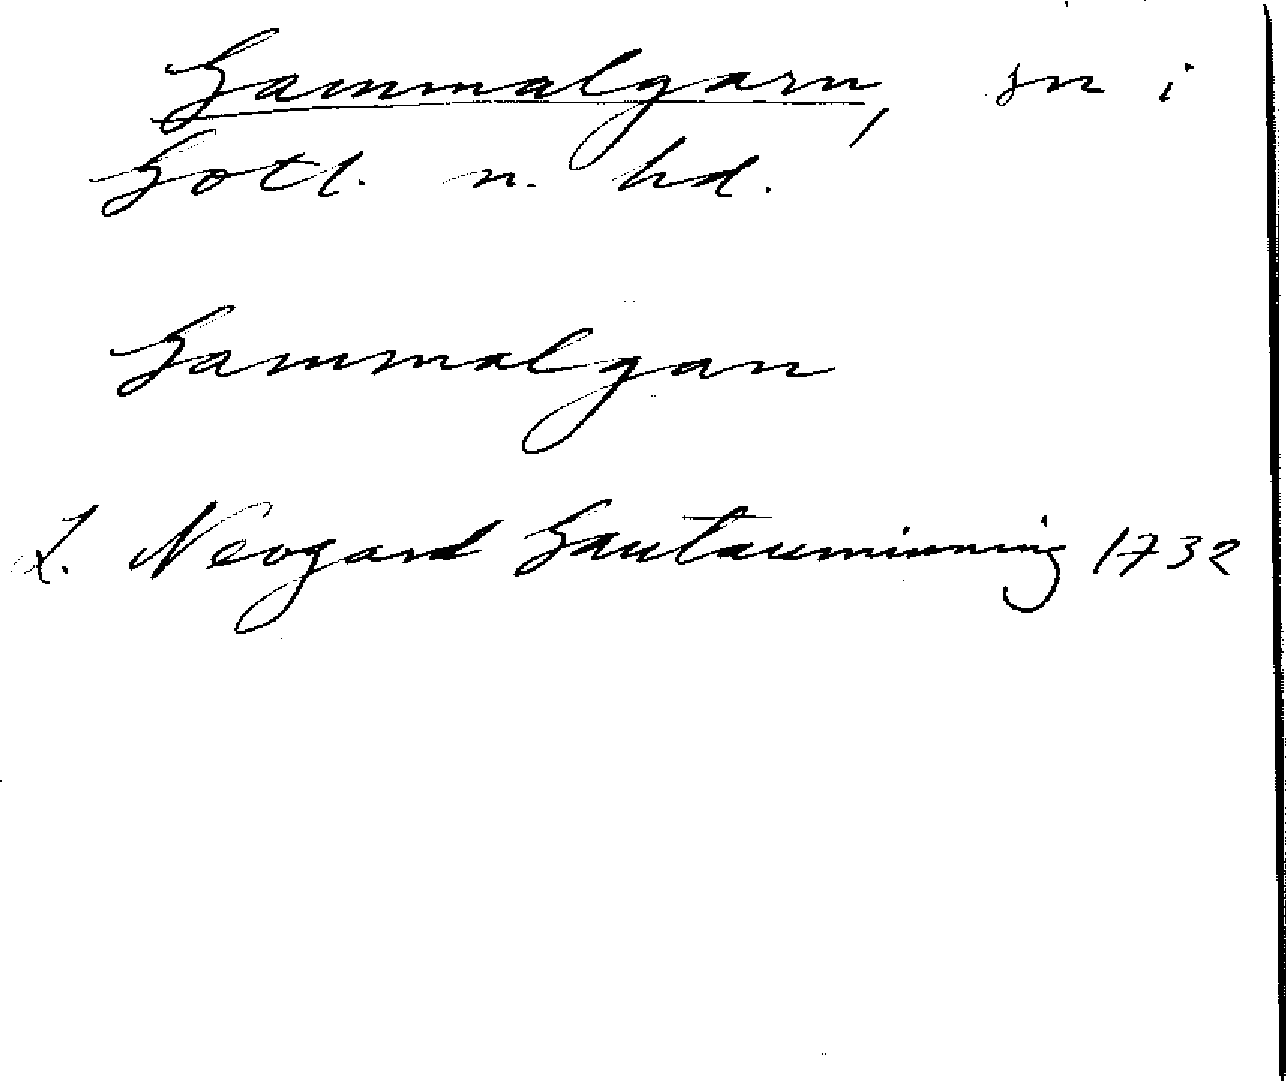 Gammalgarn, sn i
Gotl. n. hd.
Gammalgan
L. Neogard Gautauminning 1732